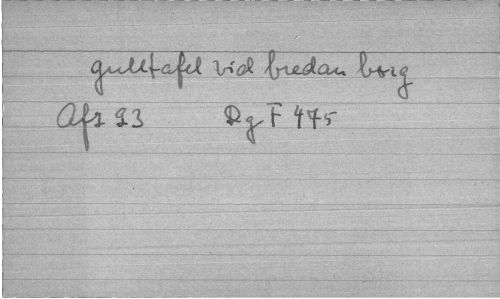 gulltafel vid bredan borg
Afz 93 Dg F 475